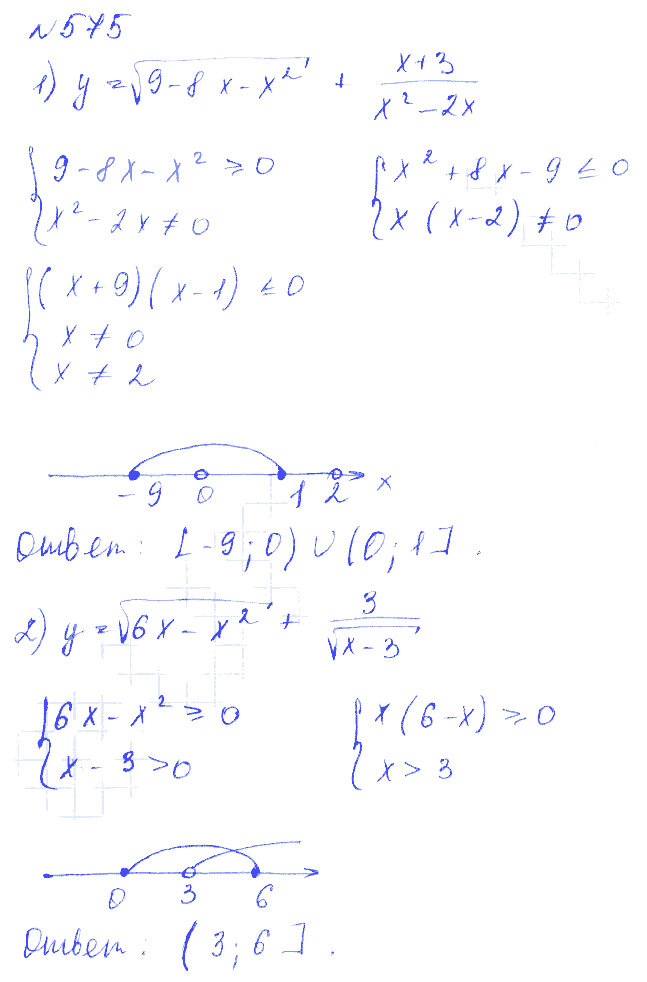 №575
1) y = √(9-8x-x²) + (x+3)/(x²-2x)
{ 9-8x-x² ≥ 0   { x²+8x-9 ≤ 0
{ x²-2x ≠ 0   { x(x-2) ≠ 0
{ (x+9)(x-1) ≤ 0
{ x ≠ 0
{ x ≠ 2
-9 0 1 2 x
Ответ: [-9;0)∪(0;1].
2) y = √(6x-x²) + 3/√(x-3)
{ 6x-x² ≥ 0   { x(6-x) ≥ 0
{ x-3 > 0   { x > 3
0 3 6
Ответ: (3;6].